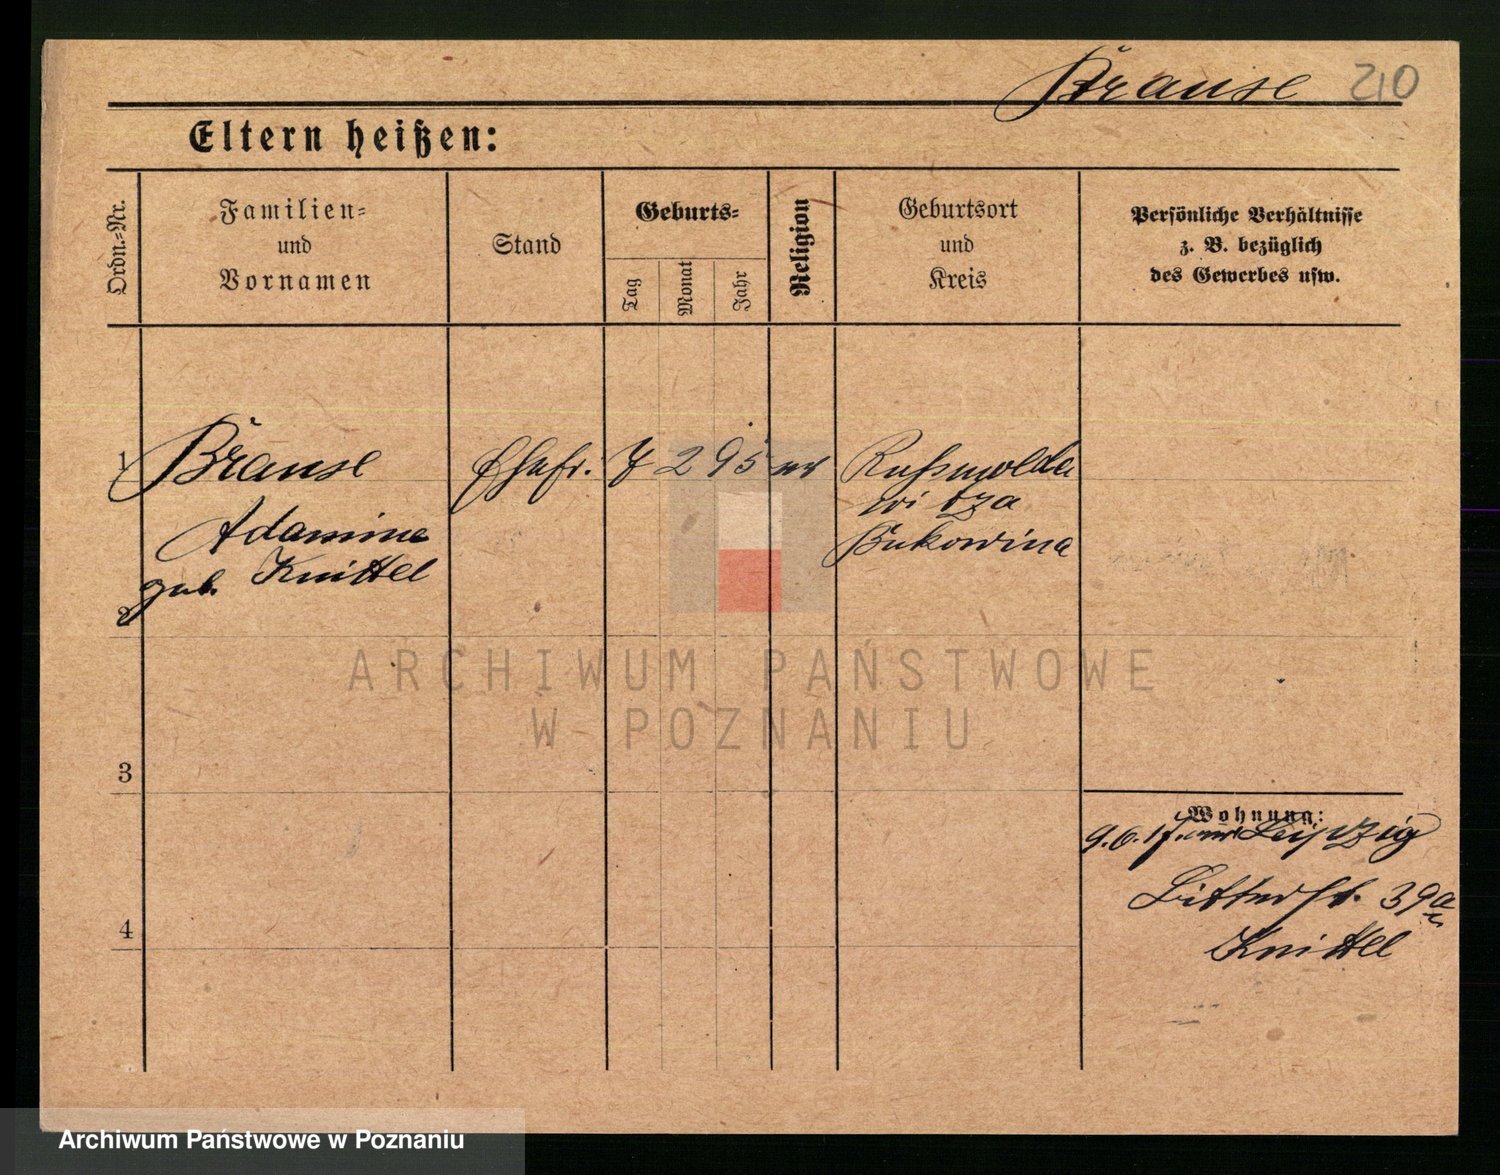 Brause 210
Eltern heißen:
Ordn.-Nr.
Familien-
und
Vornamen
Stand
Geburts-
Tag
Monat
Jahr
Religion
Geburtsort
und
Kreis
Persönliche Verhältnisse
z. B. bezüglich
des Gewerbes usw.
1 Brause Ehefr. 7 2 95 Russmolda
witza
Adamine Bukowina
geb. Knittel
2
ARCHIWUM PAŃSTWOWE
W POZNANIU
3
Wohnung:
9.6.17. Leipzig
39a
4 Knittel
Archiwum Państwowe w Poznaniu